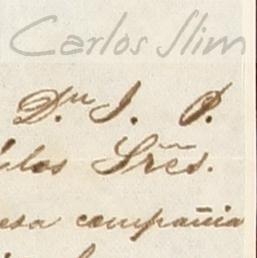 Carlos Slim
Dn J. P.
los Sres.
esa compañia